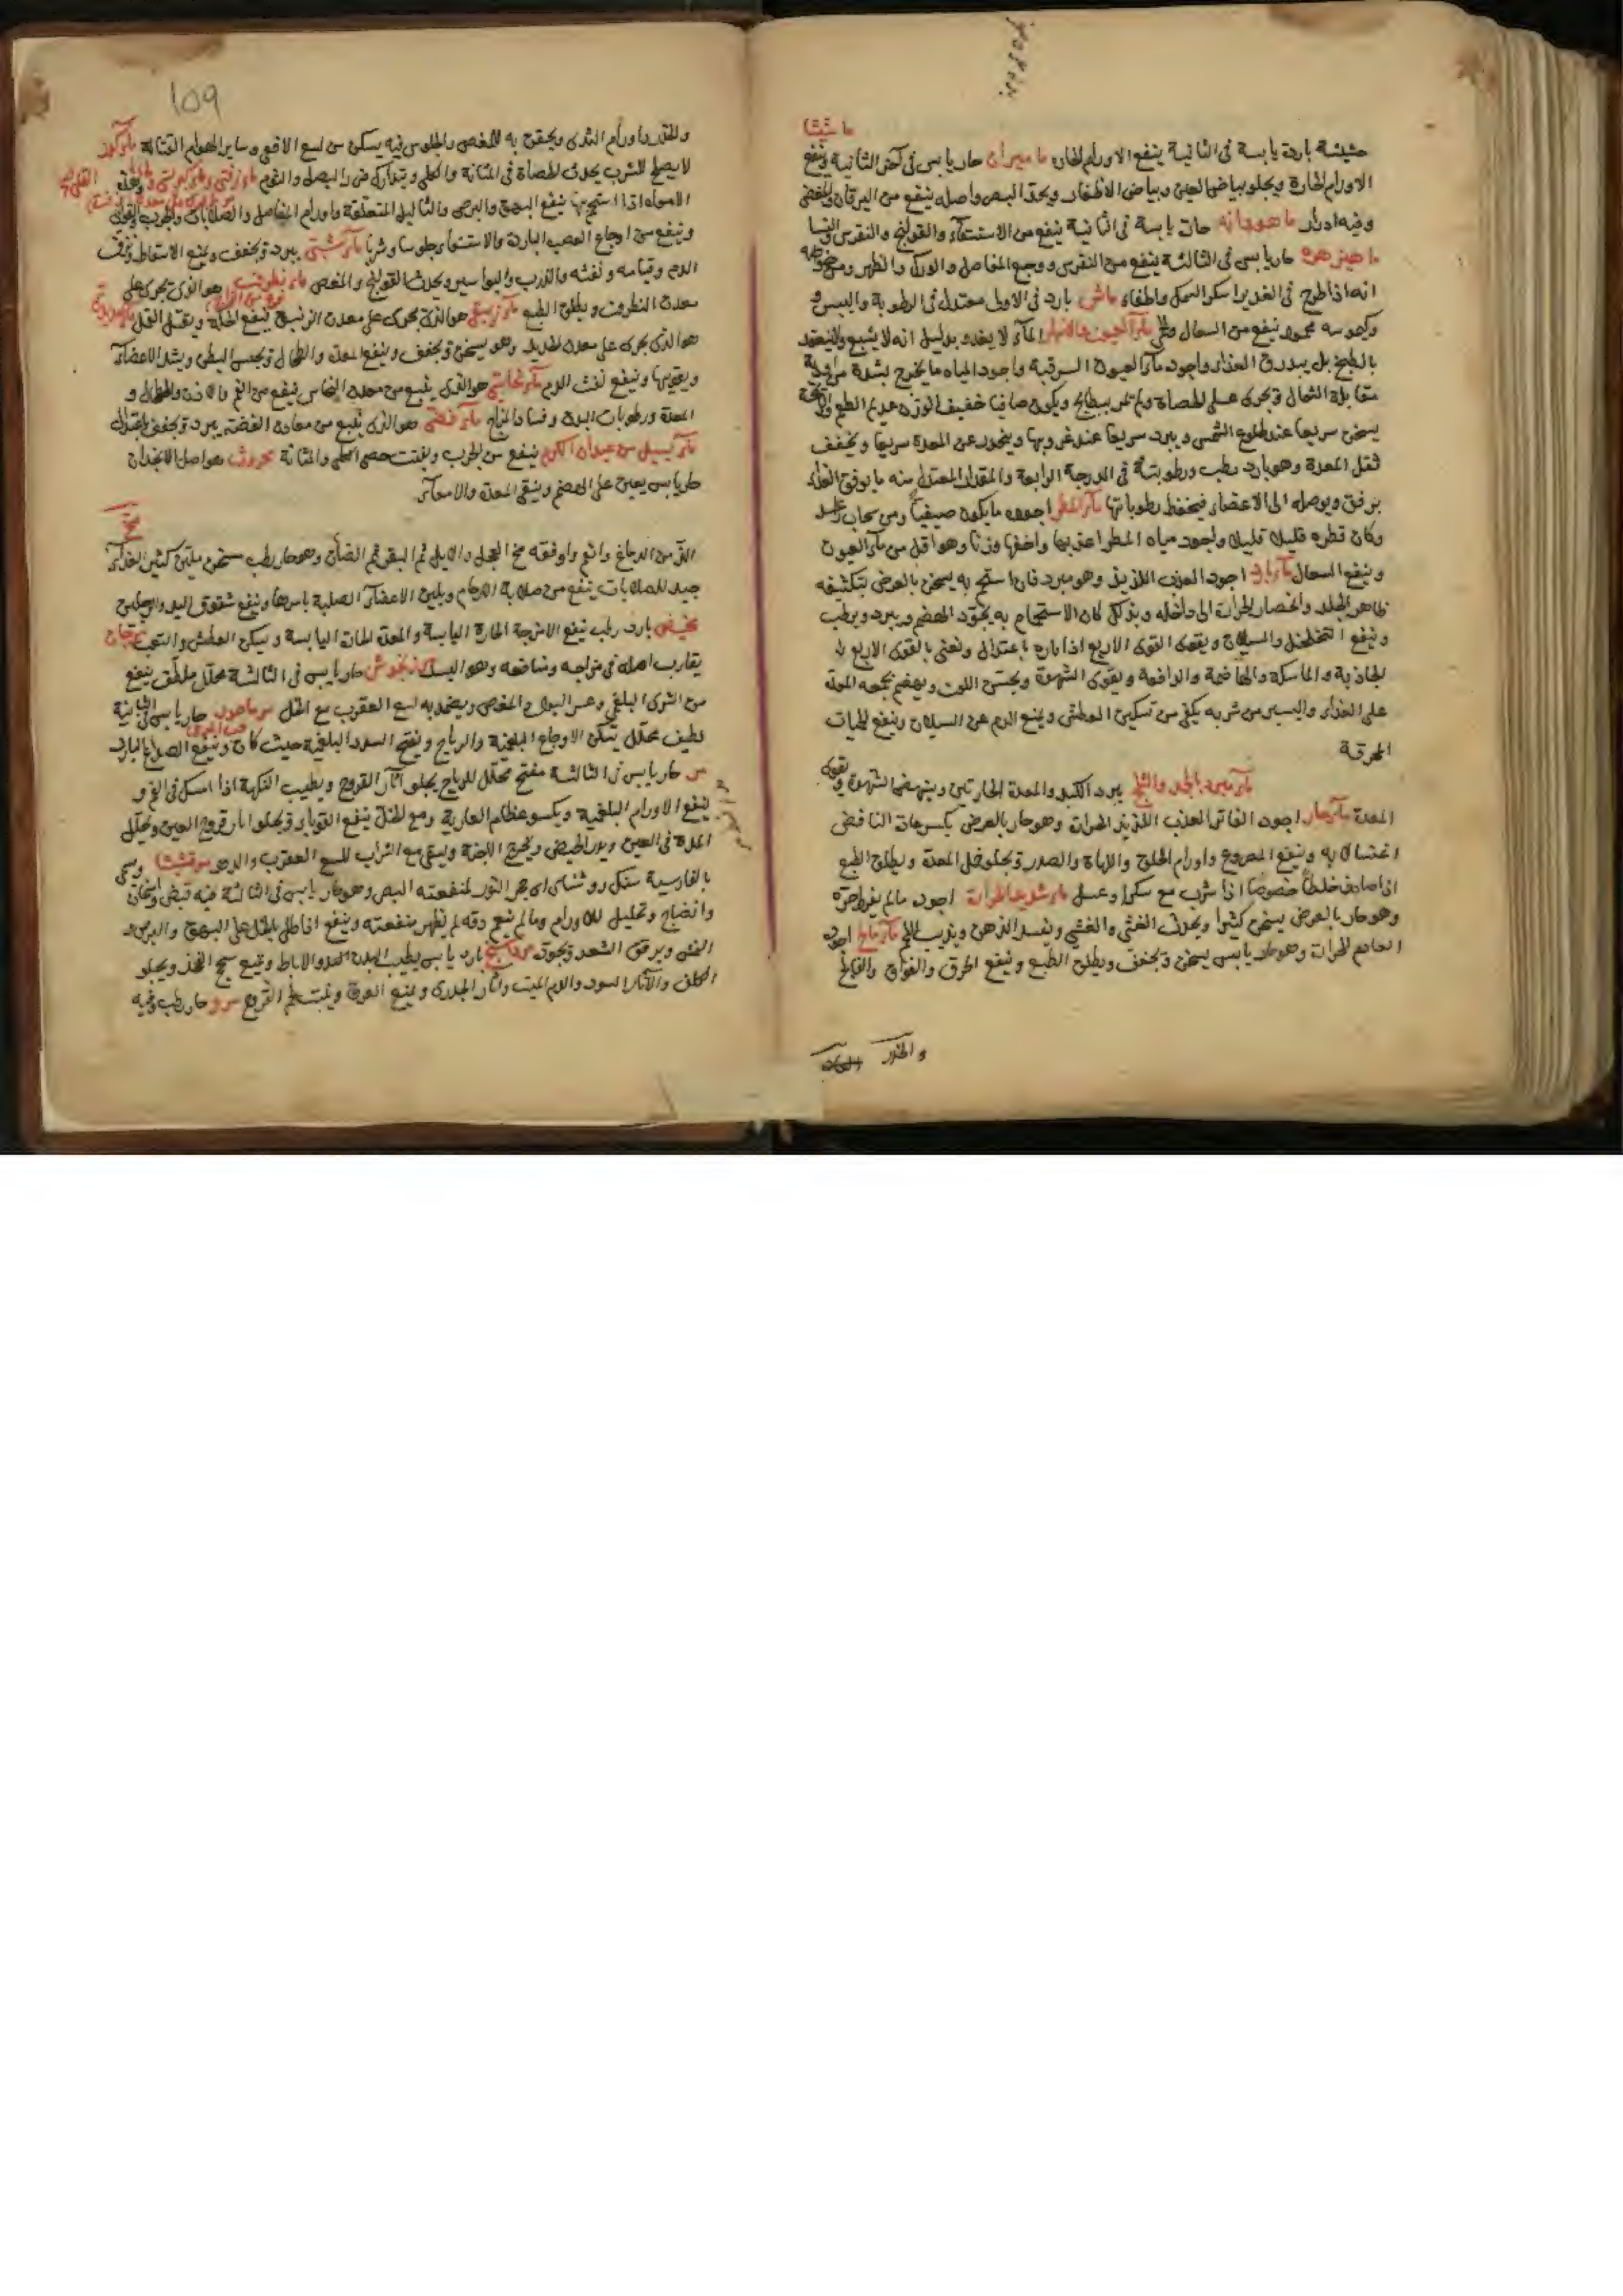 ماميثا
حشيشة باردة يابسة فى الثانية ينفع الاورام الحارة ماميران حار يابس فى آخر الثانية وينفع
الاورام الحارة ويجلو بياض العين وبياض الاظفار ويحد البصر واصله ينفع من اليرقان والمغص
وفيه ادرار ماهودانه حارة يابسة فى الثانية ينفع من الاستسقاء والقولنج والنقرس والنسا
ماهيزهره حار يابس فى الثالثة ينفع من النقرس ووجع المفاصل والورك والظهر ومن
انه اذا طرح فى الغدير اسكر السمك واطفاه ماش بارد فى الاولى معتدل فى الرطوبة واليبس و
وكيموسه محمود ينفع من السعال ماء العيون والانهار الماء لا يغذو بدليل انه لا يشبع ولا ينعقد
بالطبخ بل يبدرق الغذاء واجود ماء العيون الشرقية واجود المياه ما يخرج بشدة من
مقابلة الشمال ويجرى على الحصاة ولم تمر ببطايح ويكون صافيا خفيف الوزن عديم الطعم والرايحة
يسخن سريعا عند طلوع الشمس ويبرد سريعا عند غروبها وينحدر عن المعدة سريعا ويخفف
ثقل المعدة وهو بارد رطب ورطوبته فى الدرجة الرابعة والمقدار المعتدل منه ما يوفق الغذاء
برفق ويوصله الى الاعضاء فيحفظ رطوباتها ماء المطر اجوده ما يكون صيفيا ومن سحاب راعد
وكان قطره قليلا قليلا واجود مياه المطر اعذبها واخفها وزنا وهو اقل من ماء العيون
وينفع السعال ماء بارد اجوده العذب اللذيذ وهو مبرد فان استحم به يسخن بالعرض بتكثيفه
ظاهر الجلد وانحصار الحرارة الى داخله وبذلك كان الاستحمام به يجود الهضم ويبرد ويرطب
وينفع التخلخل والسيلان ويقوى القوى الاربع اذا باره باعتدال ونعنى بالقوى الاربع
الجاذبة والماسكة والهاضمة والدافعة ويقوى الشهوة ويحسن اللون ويهضم بجمعه المعدة
على الغذاء واليسير من شربه يكفى من تسكين العطش ويمنع الدم عن السيلان وينفع الحميات
المحرقة
ماء مبرد بالجمد والثلج يبرد الكبد والمعدة الحارتين وينهض الشهوة ويقوى
المعدة ماء حار اجوده الفاتر العذب اللذيذ الحرارة وهو حار بالعرض يكسر عادة النافض
اغتسالا به وينفع المصروع واورام الحلق واللهاة والصدر ويجلو خمل المعدة ويطلق الطبع
اذا صادف خلطا خصوصا اذا شرب مع سكر او عسل ماء شديد الحرارة اجوده مالم يفرط حره
وهو حار بالعرض يسخن كثيرا ويحدث الغثى والغشى ويفسد الذهن ويذيب اللحم ماء مالح اجوده
العادم الحرارة وهو حار يابس يسخن ويجفف ويطلق الطبع وينفع الحرق والفواق والفالج
والخدر
109
والخدر واورام الثدى ويحقن به للمغص والجلوس فيه يسكن من لسع الافعى وساير الهوام القتالة
لا يصلح للشرب يحدث الحصاة فى المثانة والكلى ويتدارك ضرره البصل والثوم
الامياه اذا استحم بها ينفع البهق والبرص والثاليل المتعلقة واورام المفاصل والصلابات والجرب
وينفع من اوجاع العصب الباردة والاستسقاء جلوسا وشربا ماء شبى يبرد ويجفف ويمنع الاسقاط ونزف
الدم وقيامه ونفثه والذرب والبواسير ويحدث القولنج والمغص ماء نطرونى هو الذى يجرى على
معدن النطرون ويطلق الطبع ماء زيبقى هو الذى يجرى على معدن الزيبق ينفع الحكة ويقتل القمل ماء حديدى
هو الذى يجرى على معدن الحديد وهو يسخن ويجفف وينفع المعدة والطحال ويحبس البطن ويشد الاعضاء
ويقويها وينفع نفث الدم ماء نحاسى هو الذى ينبع من معدن النحاس ينفع من الفم والاذن والطحال و
المعدة ورطوبات البدن وفساد المزاج ماء فضى هو الذى ينبع من معادن الفضة يبرد ويجفف باعتدال
ماء يسيل من عيدان الكرم ينفع من الجرب ويفتت حصى الكلى والمثانة محروث هو اصل الانجدان
حار يابس يعين على الهضم وينقى المعدة والامعاء
مخ
الذ من الدماغ وانعم واوفقه مخ العجل والايل ثم البقر ثم الضان وهو حار رطب مسخن ملين كثير الغذاء
جيد للصلابات ينفع من صلابة الارحام ويلين الاعضاء الصلبة باسرها وينفع شقوق اليد والرجلين
مخيض بارد رطب ينفع الامزجة الحارة اليابسة والمعدة الحارة اليابسة ويسكن العطش والتعب مرجان
يقارب اصله فى مزاجه ومنافعه وهو البسد مرزنجوش حار يابس فى الثالثة محلل ملطف ينفع
من الشرى البلغمى وعسر البول والمغص ويضمد به لسع العقرب مع الخل مرماحوز حار يابس فى الثانية
لطيف محلل يسكن الاوجاع البلغمية والرياح ويفتح السدد البلغمية حيث كان وينفع الصداع البارد
مر حار يابس فى الثالثة مفتح محلل للرياح يجلو آثار القروح ويطيب النكهة اذا امسك فى الفم و
ينفع الاورام البلغمية ويكسو عظام العارية ومع الخل ينفع القوباء ويجلو آثار قروح العين ويحلل
المدة فى العين ويدر الحيض ويخرج الاجنة ويسقى مع الشراب للسع العقرب مرقشيشا وسمى
بالفارسية سنك روشنائى اى حجر النور لمنفعته البصر وهو حار يابس فى الثالثة فيه قبض واسخان
وانضاج وتحليل للاورام وما لم ينعم دقه لم يظهر منفعته وينفع اذا طلى بالخل على البهق والبرص
النمش ويرقق الشعر ويجعده مرداسنج بارد يابس يطيب البدن والاباط ويمنع سحج الفخذ ويجلو
الكلف والآثار السود والدم الميت وآثار الجدرى ويمنع العرق وينبت لحم القروح مرو حار رطب وفيه